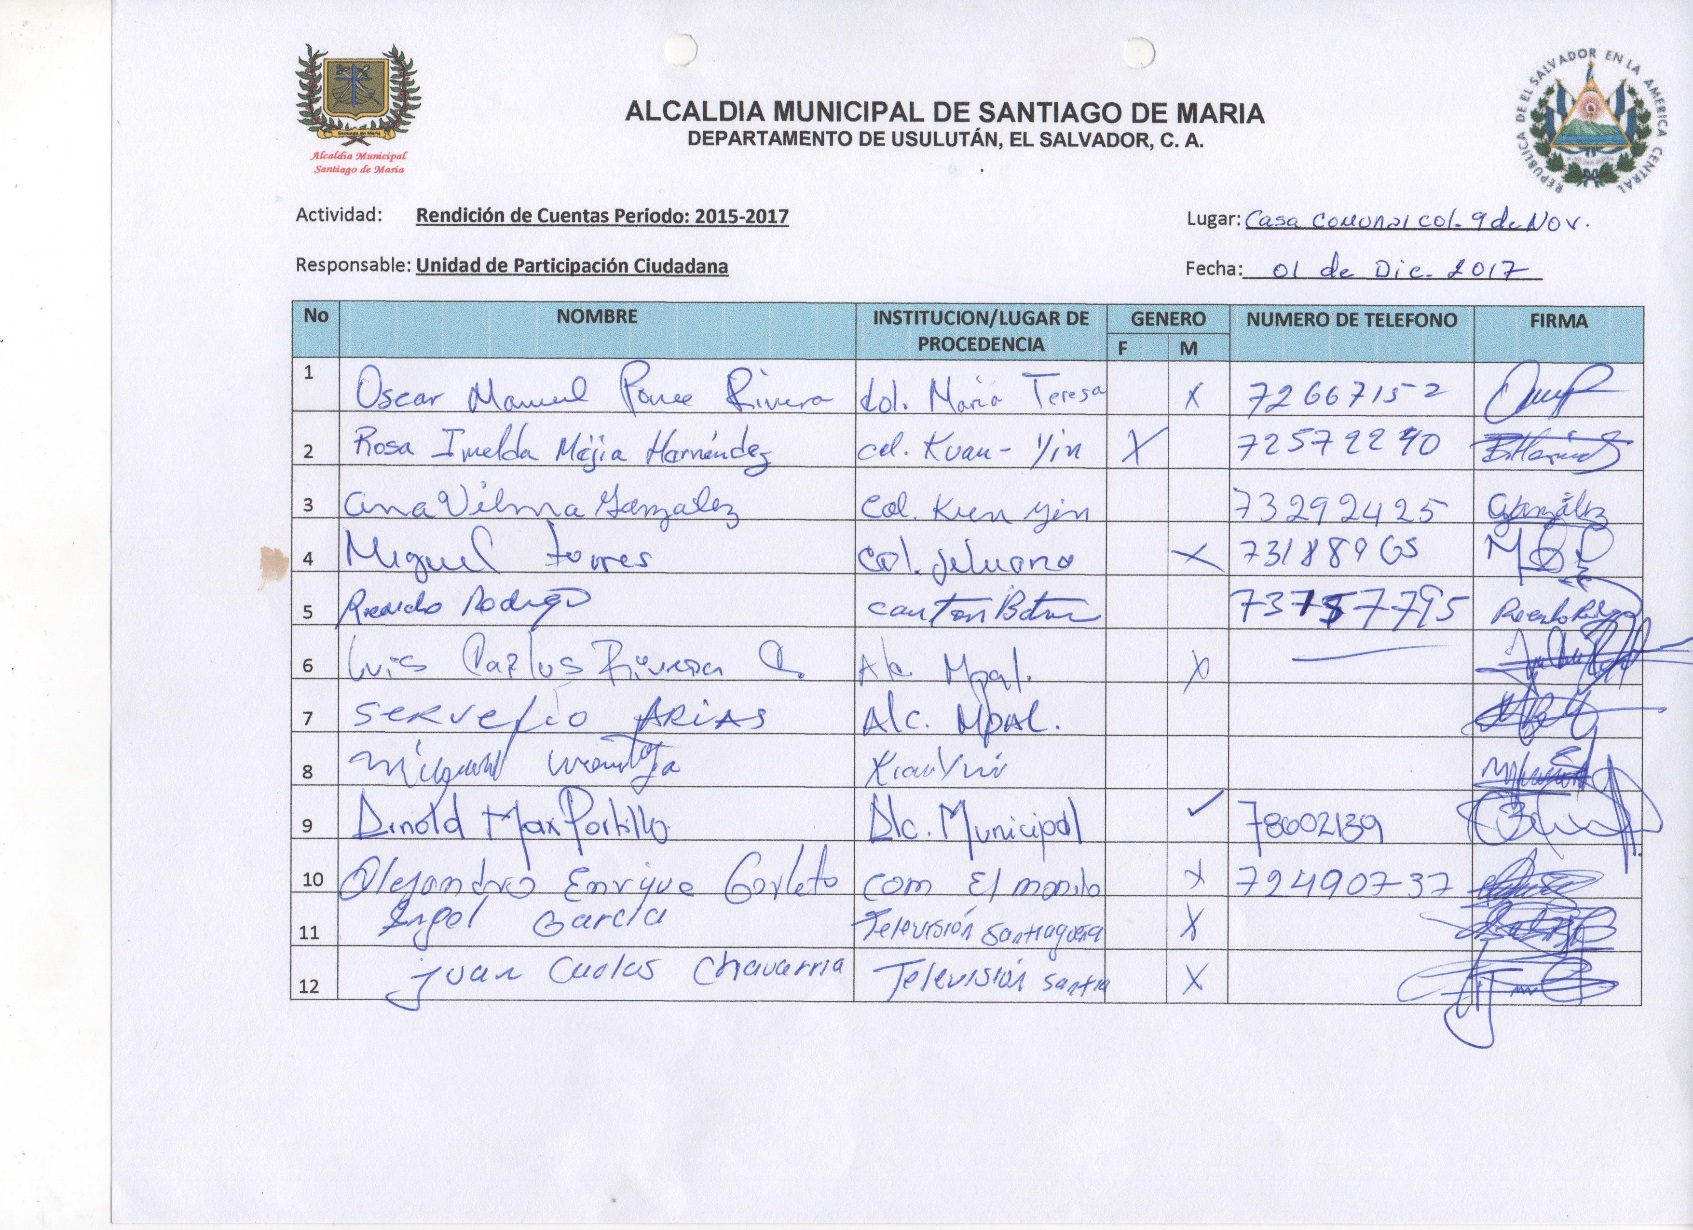 Santiago de María
Alcaldía Municipal
Santiago de María
ALCALDIA MUNICIPAL DE SANTIAGO DE MARIA
DEPARTAMENTO DE USULUTÁN, EL SALVADOR, C. A.
REPUBLICA DE EL SALVADOR EN LA AMERICA CENTRAL
Actividad: Rendición de Cuentas Periodo: 2015-2017 Lugar: Casa Comunal col. 9 de Nov.
Responsable: Unidad de Participación Ciudadana Fecha: 01 de Dic. 2017
No NOMBRE INSTITUCION/LUGAR DE PROCEDENCIA GENERO F M NUMERO DE TELEFONO FIRMA
1 Oscar Manuel Ponce Rivera Col. Maria Teresa X 72667152
2 Rosa Imelda Mejia Hernández col. Kuan-Yin X 72572290
3 Ana Vilma Gonzalez Col. Kuen yin 73292425 González
4 Miguel torres Col. X 73188965
5 Ricardo Rodrigo canton 73757795
6 Luis Carlos Rivera C. Alc. Mpal. X
7 SERVELIO ARIAS Alc. Mpal.
8 Miguel
9 Arnold Max Portillo Alc. Municipal ✓ 78602139
10 Alejandro Enrique Gorleto com El X 72490737
11 Angel Garcia Televisión Santiagueña X
12 Juan Carlos Chavarria Televisión Santia X